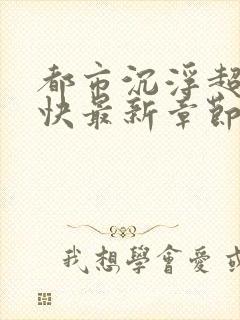 都市沉浮超
快最新章節
我想學會愛或